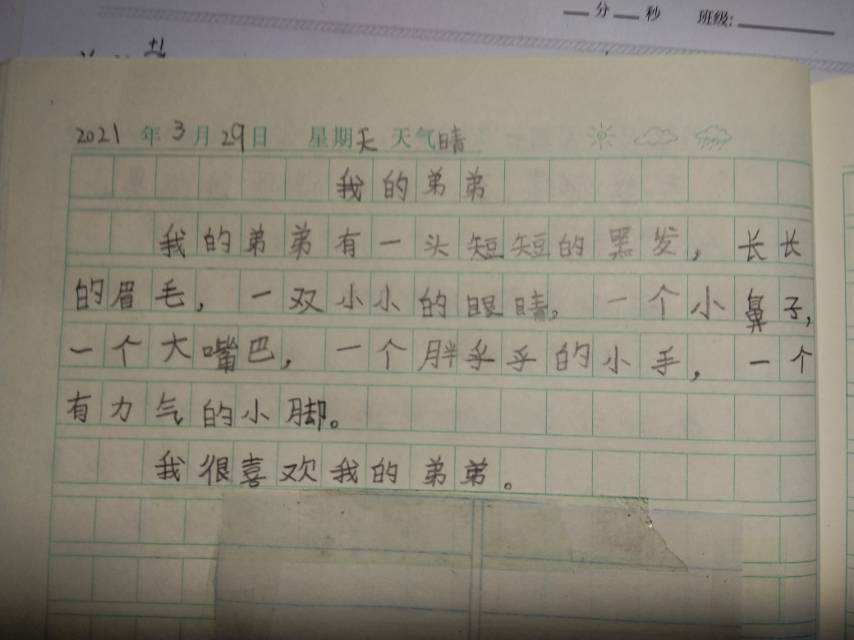 分 秒 班级:
2021年3月29日 星期天 天气晴
我的弟弟
我的弟弟有一头短短的黑发，长长
的眉毛，一双小小的眼睛，一个小鼻子，
一个大嘴巴，一个胖乎乎的小手，一个
有力气的小脚。
我很喜欢我的弟弟。